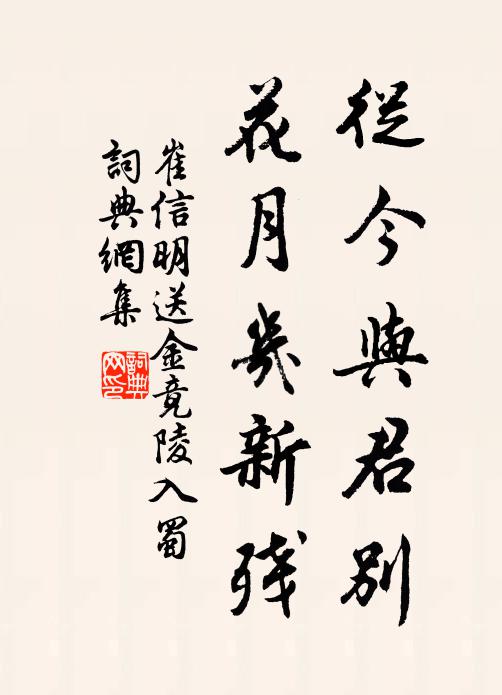 從今與君别
花月幾新殘
崔信明送金竟陵入蜀
詞典網集
詞典網印